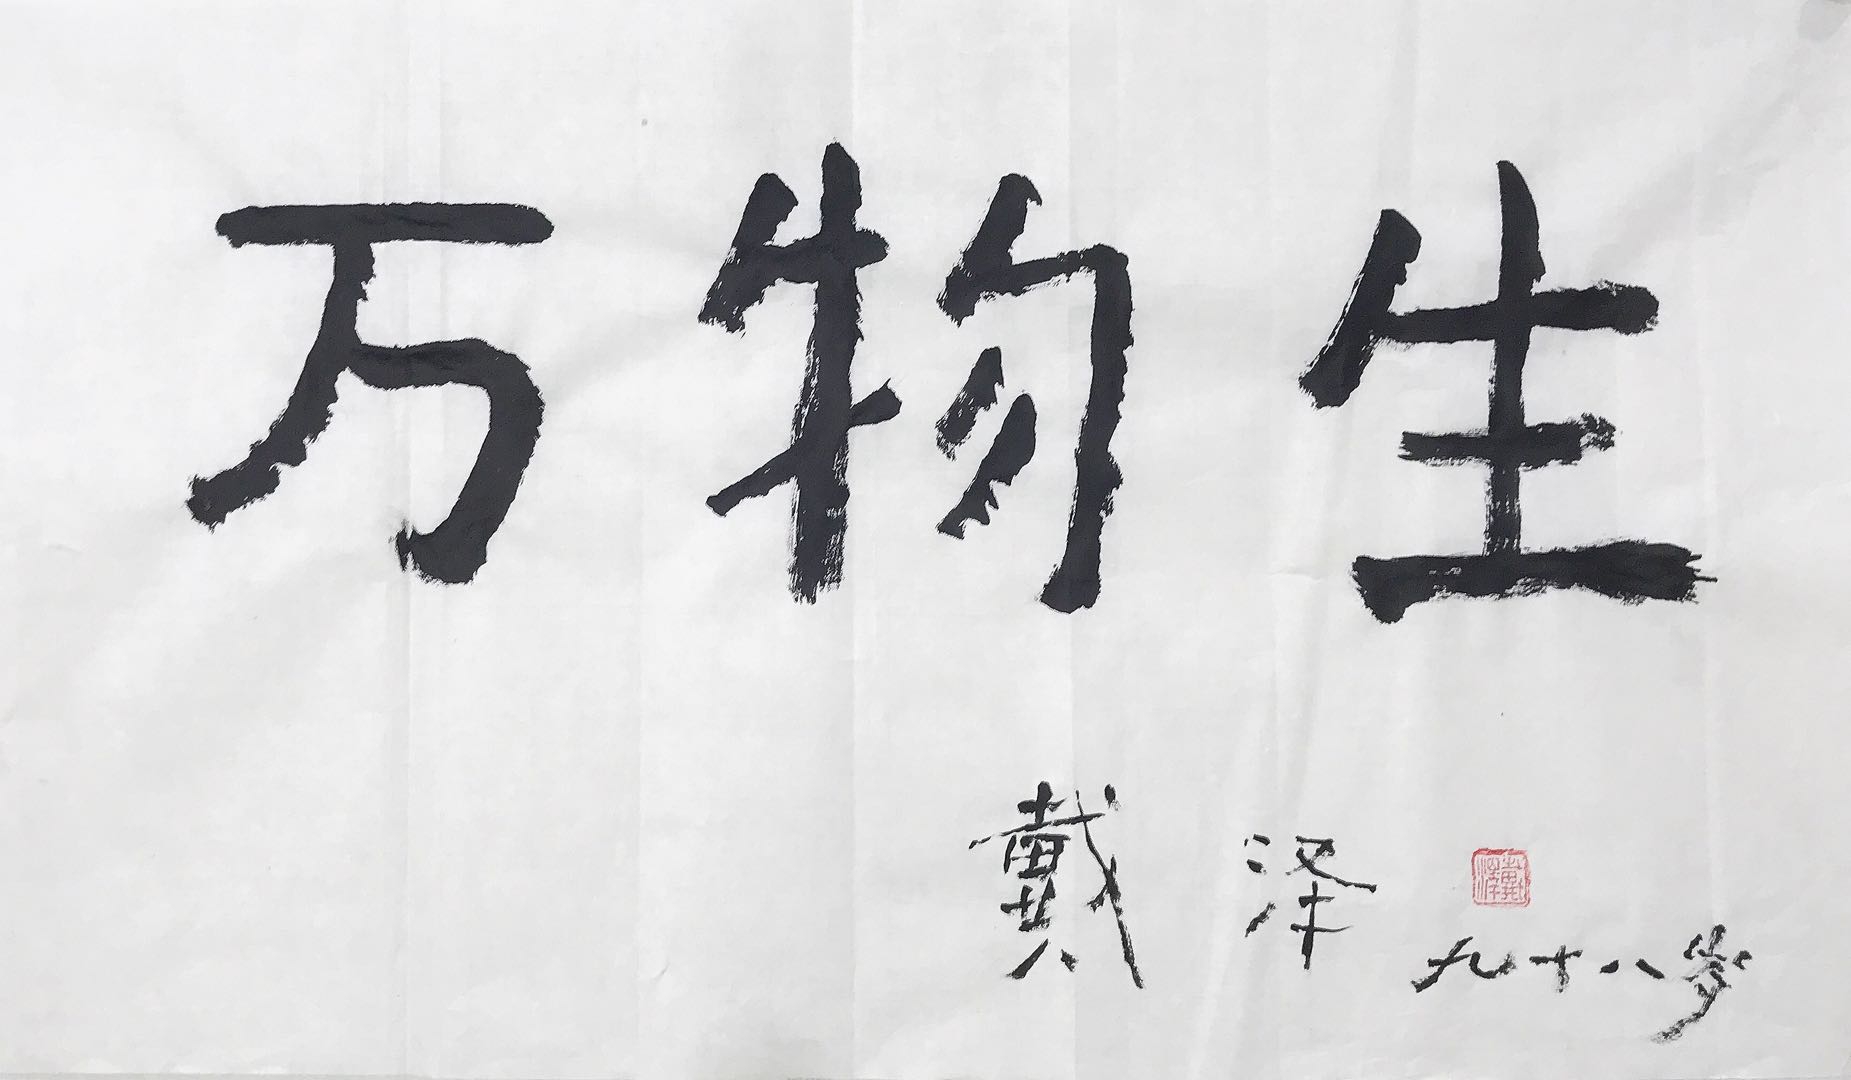 万物生
戴泽
九十八岁
戴泽